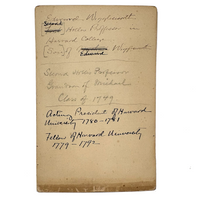 Edward Wigglesworth
Second Hollis Professor in
Harvard College
Edward Wigglesworth
Second Hollis Professor
Grandson of Michael
Class of 1749
Acting President of Harvard
University 1780-1781
Fellow of Harvard University
1779-1792